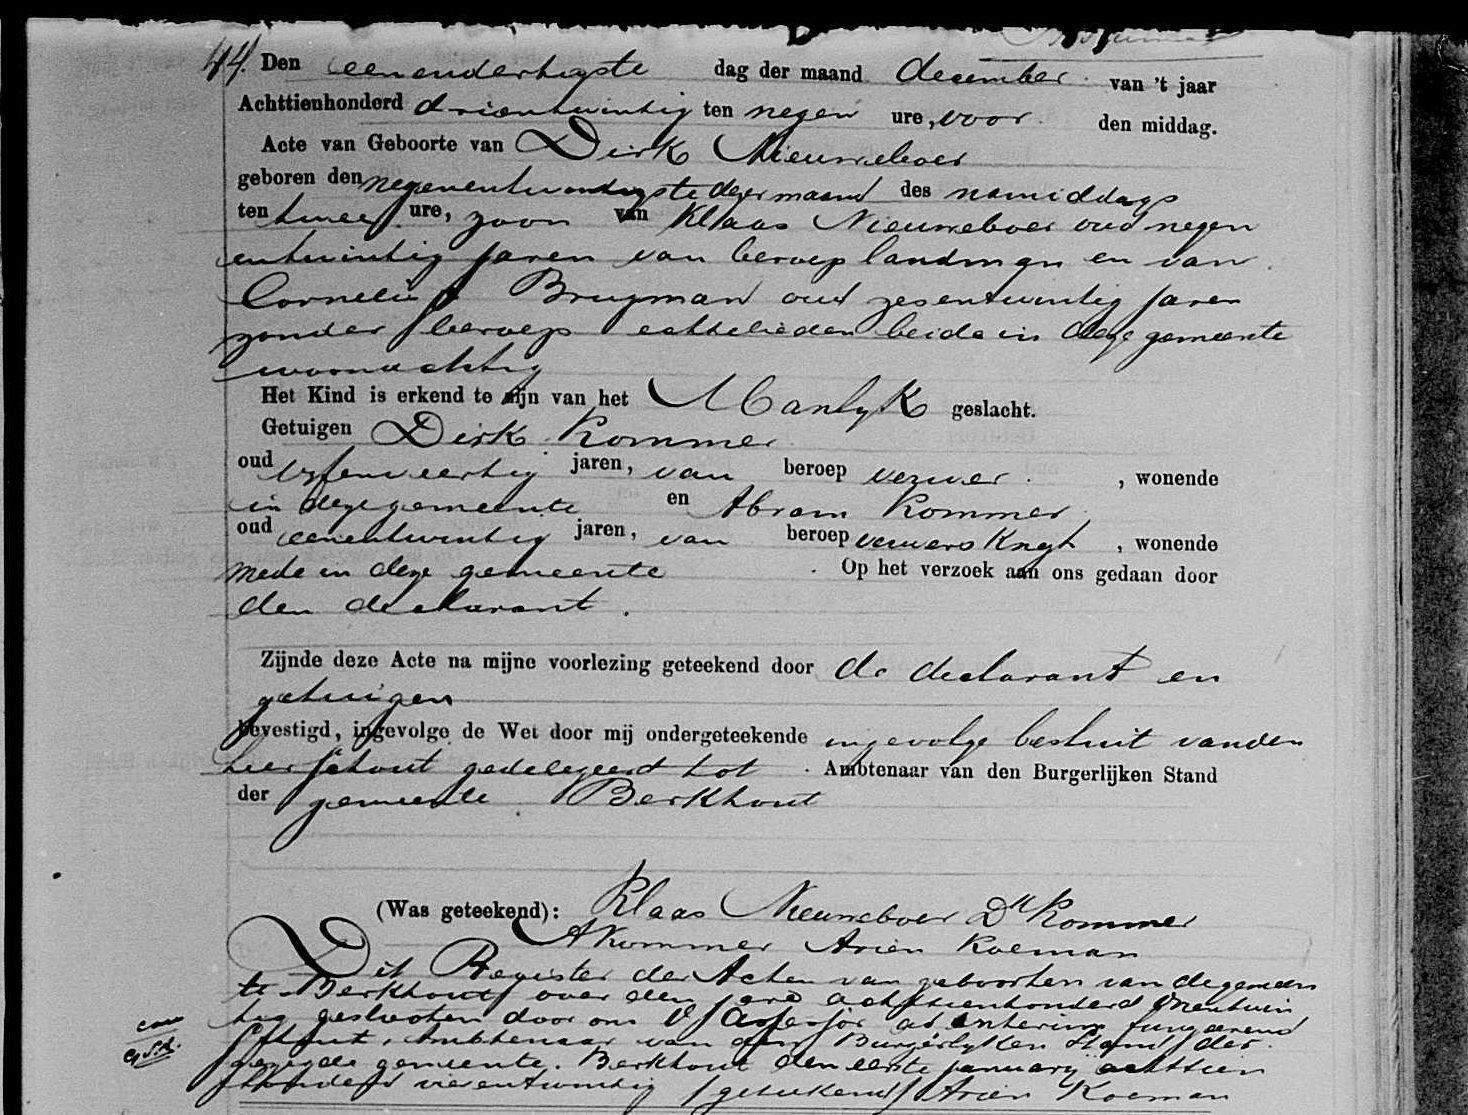 44. Den eenendertigste dag der maand december van 't jaar
Achttienhonderd drieentwintig ten negen ure, voor den middag.
Acte van Geboorte van Dirk Nieuweboer
geboren den negenentwintigste dezer maand des namiddags
ten twee ure, zoon van Klaas Nieuweboer oud negen
entwintig jaren van beroep landman en van
Cornelisje Brugman oud zesentwintig jaren
zonder beroep echtelieden beide in deze gemeente
woonachtig
Het Kind is erkend te zijn van het Manlyk geslacht.
Getuigen Dirk Kommer
oud vyfenveertig jaren, van beroep verwer , wonende
in deze gemeente en Abram Kommer
oud eenentwintig jaren, van beroep verwers Knegt , wonende
mede in deze gemeente . Op het verzoek aan ons gedaan door
den declarant .
Zijnde deze Acte na mijne voorlezing geteekend door de declarant en
getuigen
bevestigd, ingevolge de Wet door mij ondergeteekende ingevolge besluit van den
heer schout gedelegeerd tot Ambtenaar van den Burgerlijken Stand
der gemeente Berkhout
(Was geteekend): Klaas Nieuweboer Dk Kommer
A Kommer Arien Koeman
Dit Register der Acten van geboorten van de gemeen
te Berkhout over den jare achttienhonderd drieentwin
tig gesloten door ons Assessor ad interim fungerend
Schout, Ambtenaar van den Burgerlyken Stand der
gezegde gemeente. Berkhout den eerste january achttien
honderd vierentwintig (getekend) Arien Koeman